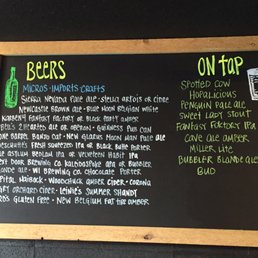 BEERS
MICROS · IMPORTS CRAFTS
SIERRA NEVADA PALE ALE · STELLA ARTOIS OR CIDER
NEWCASTLE BROWN ALE · BLUE MOON BELGIAN WHITE
KARBEN4 FANTASY FACTORY OR BLACK AMBER
BELL'S 2HEARTED ALE OR OBERON · GUINNESS PUB CAN
NEW GLARUS MOON MAN PALE ALE
DESCHUTES FRESH SQUEEZED IPA OR BLACK BUTTE PORTER
ASYLUM BEDLAM IPA OR VELVETEEN HABIT IPA
NEXT DOOR BREWING CO KALEIDOSPOKE APA OR BUBBLER
BLONDE ALE · WI BREWING CO. CHOCOLATE PORTER
CAPITAL MAIBOCK · WOODCHUCK AMBER CIDER · CORONA
ANGRY ORCHARD CIDER · LEINIE'S SUMMER SHANDY
GLUTEN FREE · NEW BELGIUM FAT TIRE AMBER
ON TAP
SPOTTED COW
HOPALICIOUS
PENGUIN PALE ALE
SWEET LADY STOUT
FANTASY FACTORY IPA
CAVE ALE AMBER
MILLER LITE
BUBBLER BLONDE ALE
BUD